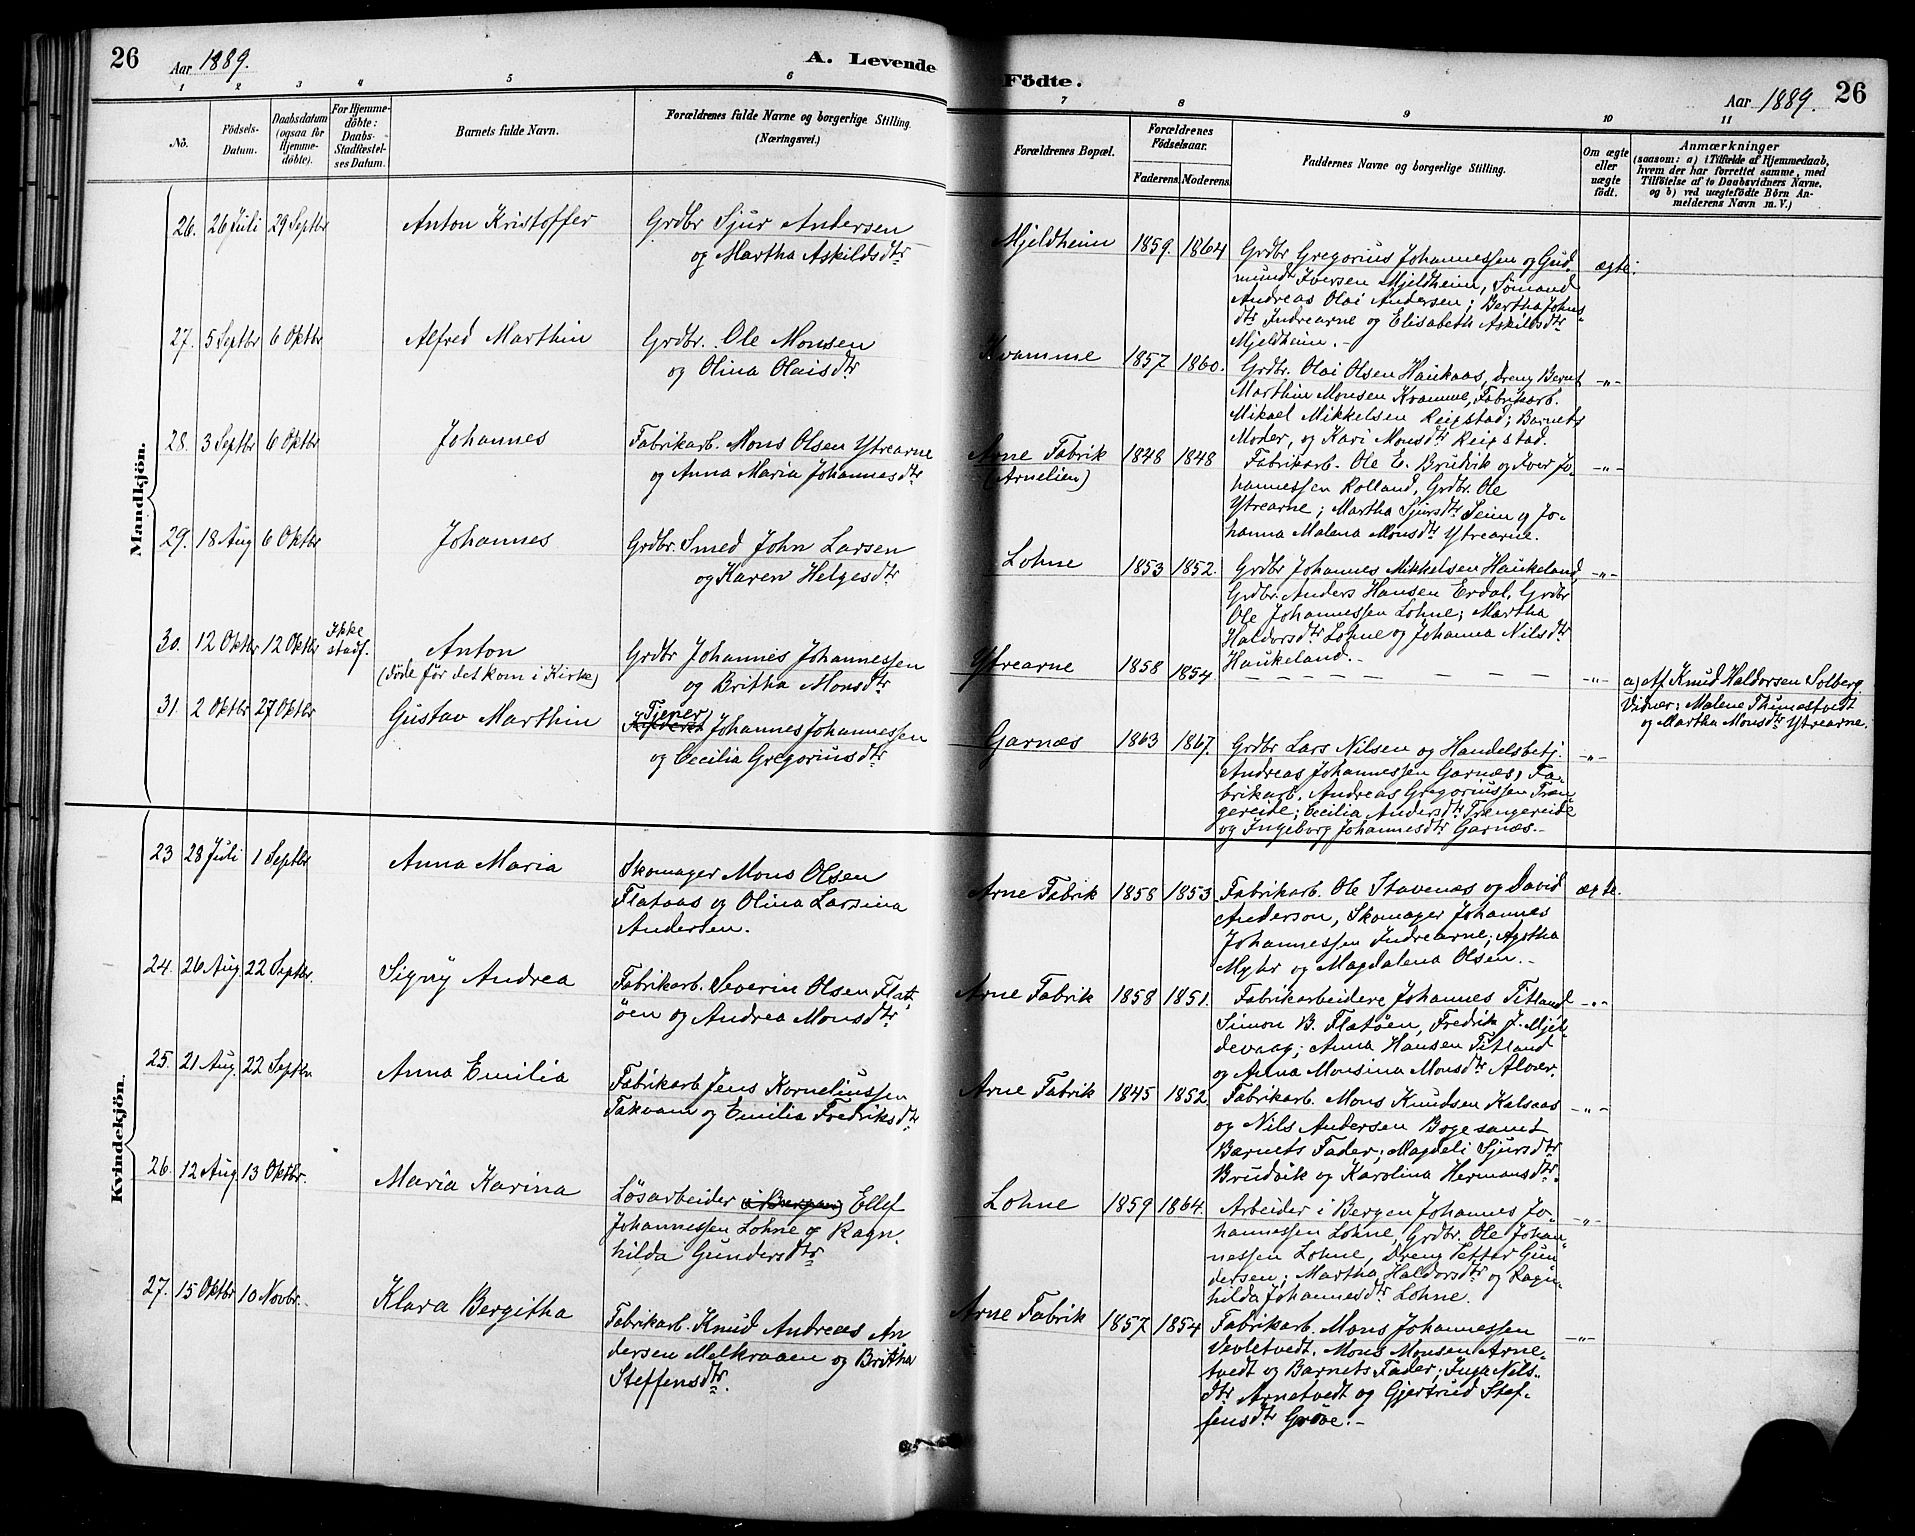 26
Aar 1889.
A. Levende
1 2 3 4 5 6
No.
Födsels-
Datum.
Daabsdatum
(ogsaa for
Hjemme-
döbte).
For Hjemme-
döbte:
Daabs-
Stadfæstel-
ses Datum.
Barnets fulde Navn.
Forældrenes fulde Navne og borgerlige Stilling.
(Næringsvei.)
Mandkjön.
26. 26 Juli 29 Septbr Anton Kristoffer Grdbr Sjur Andersen
og Martha Askildsdtr
27. 5 Septbr 6 Oktbr Alfred Marthin Grdbr. Ole Monsen
og Olina Olaisdtr
28. 3 Septbr 6 Oktbr Johannes Fabrikarb. Mons Olsen Ytrearne
og Anna Maria Johannesdtr
29. 18 Aug 6 Oktbr Johannes Grdbr. Smed John Larsen
og Karen Helgesdtr
30. 12 Oktbr 12 Oktbr Ikke
stadf.
Anton
(döde för det kom i Kirke)
Grdbr Johannes Johannessen
og Britha Monsdtr
31. 2 Oktbr 27 Oktbr Gustav Marthin Tjener
Johannes Johannessen
og Cecilia Gregoriusdtr
Kvindekjön.
23 28 Juli 1 Septbr Anna Maria Skomager Mons Olsen
Flataas og Olina Larsina
Andersen.
24. 26 Aug. 22 Septbr. Signy Andrea Fabrikarb. Severin Olsen Flat-
öen og Andrea Monsdtr
25. 21 Aug. 22 Septbr Anna Emilia Fabrikarb Jens Korneliussen
Takvam og Emilia Fredriksdtr
26. 12 Aug 13 Oktbr. Maria Karina Lösarbeider (i Bergen) Ellef
Johannessen Lohne og Ragn-
hilda Gundersdtr
27. 15 Oktbr 10 Novbr. Klara Bergitha Fabrikarb. Knud Andreas An
dersen Melkraaen og Britha
Steffensdtr.
Födte.
Aar 1889.
26
7 8 9 10 11
Forældrenes Bopæl.
Forældrenes
Födselsaar.
Faderens. Moderens.
Faddernes Navne og borgerlige Stilling.
Om ægte
eller
uægte
födt.
Anmærkninger
(saasom: a) i Tilfælde af Hjemmedaab,
hvem der har forrettet samme, med
Tilföielse af to Daabsvidners Navne,
og b) ved uægtefödte Börn An-
melderens Navn m. V.)
Mjeldheim 1859. 1864 Grdbr Gregorius Johannessen og Gud-
mund Iversen Mjeldheim, Sömand
Andreas Olai Andersen; Bertha Johns-
dtr Indrearne og Elisabeth Askildsdtr
Mjeldheim.-
ægte.
Kvamme 1857 1860. Grdbr. Olai Olsen Haukaas, Dreng Bernt
Marthin Monsen Kvamme, Fabrikarb.
Mikael Mikkelsen Reigstad; Barnets
Moder, og Kari Monsdtr Reigstad.
-"-
Arne Fabrik
(Arnelien)
1848 1848 Fabrikarb. Ole E. Brudvik og Iver Jo-
hannessen Rolland, Grdbr. Ole
Ytrearne; Martha Sjursdtr Seim og Jo-
hanna Malena Monsdtr Ytrearne.
-"-
Lohne 1853 1852. Grdbr Johannes Mikkelsen Haukeland,
Grdbr. Anders Hansen Erdal, Grdbr
Ole Johannessen Lohne; Martha
Haldorsdtr Lohne og Johanna Nilsdtr
Haukeland.-
-"-
Ytrearne 1858 1854. - - - - - - - -"- a) Af Knud Haldorsen Solberg.
Vidner: Malene Thunestvedt
og Martha Monsdtr Ytrearne.
Garnæs 1863 1867. Grdbr Lars Nilsen og Handelsbetj.
Andreas Johannessen Garnæs, Fa-
brikarb. Andreas Gregoriussen Træn-
gereide; Cecilia Andersdtr Trængereide
og Ingeborg Johannesdtr Garnæs.-
-"-
Arne Fabrik 1858 1853 Fabrikarb. Ole Stavenæs og David
Anderson, Skomager Johannes
Johannessen Indrearne; Agatha
Myhr og Magdalena Olsen.-
ægte.
Arne Fabrik 1858 1851. Fabrikarbeidere Johannes Titland
Simon B. Flatöen, Fredrik J. Mjel-
devaag; Anna Hansen Titland
og Anna Monsina Monsdtr Alver.
-"-
Arne Fabrik 1845 1852. Fabrikarb. Mons Knudsen Kalsaas
og Nils Andersen Boge samt
Barnets Fader; Magdeli Sjursdtr
Brudvik og Karolina Hermansdtr.
-"-
Lohne 1859 1864. Arbeider i Bergen Johannes Jo-
hannessen Lohne, Grdbr. Ole Johan-
nessen Lohne, Dreng Petter Gun-
dersen; Martha Haldorsdtr og Ragn-
hilda Johannesdtr Lohne.
-"-
Arne Fabrik 1857 1854 Fabrikarb. Mons Johannessen
Vevletvedt, Mons Monsen Arne-
tvedt og Barnets Fader; Inga Nils-
dtr Arnetvedt og Gjertrud Stef-
fensdtr Gröve.-
-"-